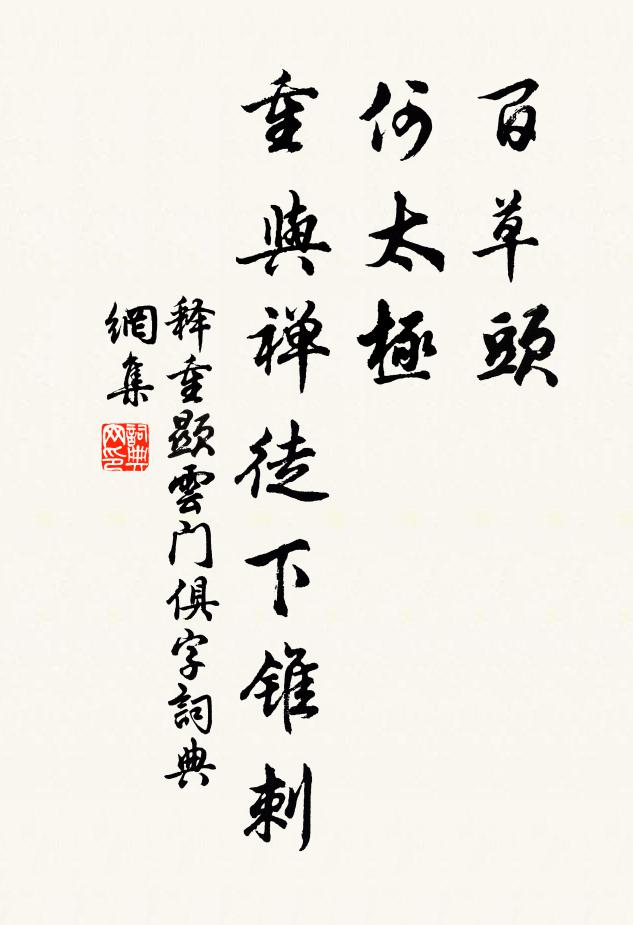 百草頭
何太極
重與禅徒下錐刺
释重顯雲门俱字詞典
網集
詞典网印